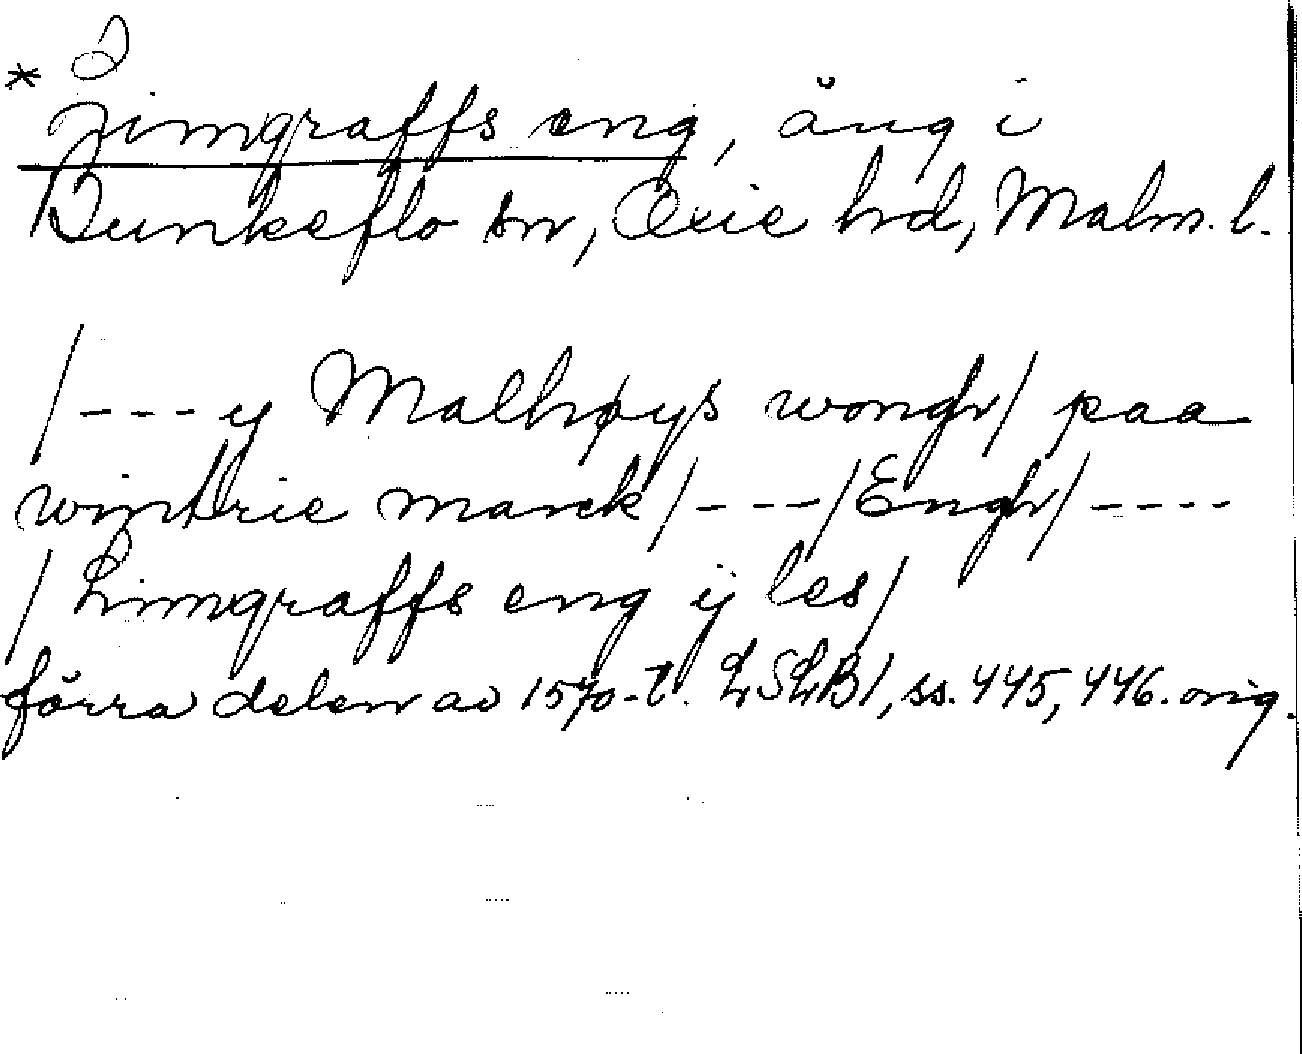 * Limgraffs eng, äng i
Bunkeflo sn, Oxie hd, Malm. l.
/---y Malhøys wongh/ paa
wintrie marck/---/Engh/----
/Limgraffs eng ij les/
förra delen av 1570-t. LSLB1, ss. 445, 446. orig.